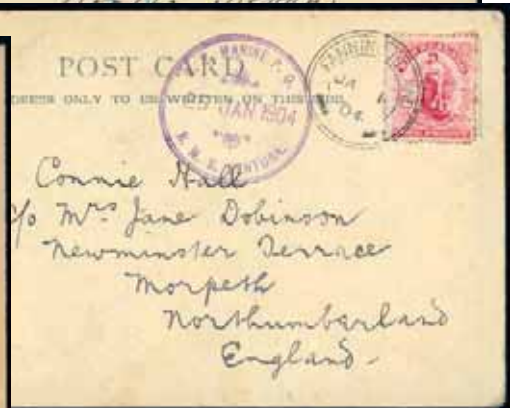 POST CARD
ONLY TO BE WRITTEN ON THIS
MARINE P.O.
JAN 1904
R.M.S. VENTURA.
FANNIN
JA
04
Connie Hall
c/o Mrs Jane Dobinson
Newminster Terrace
Morpeth
Northumberland
England -